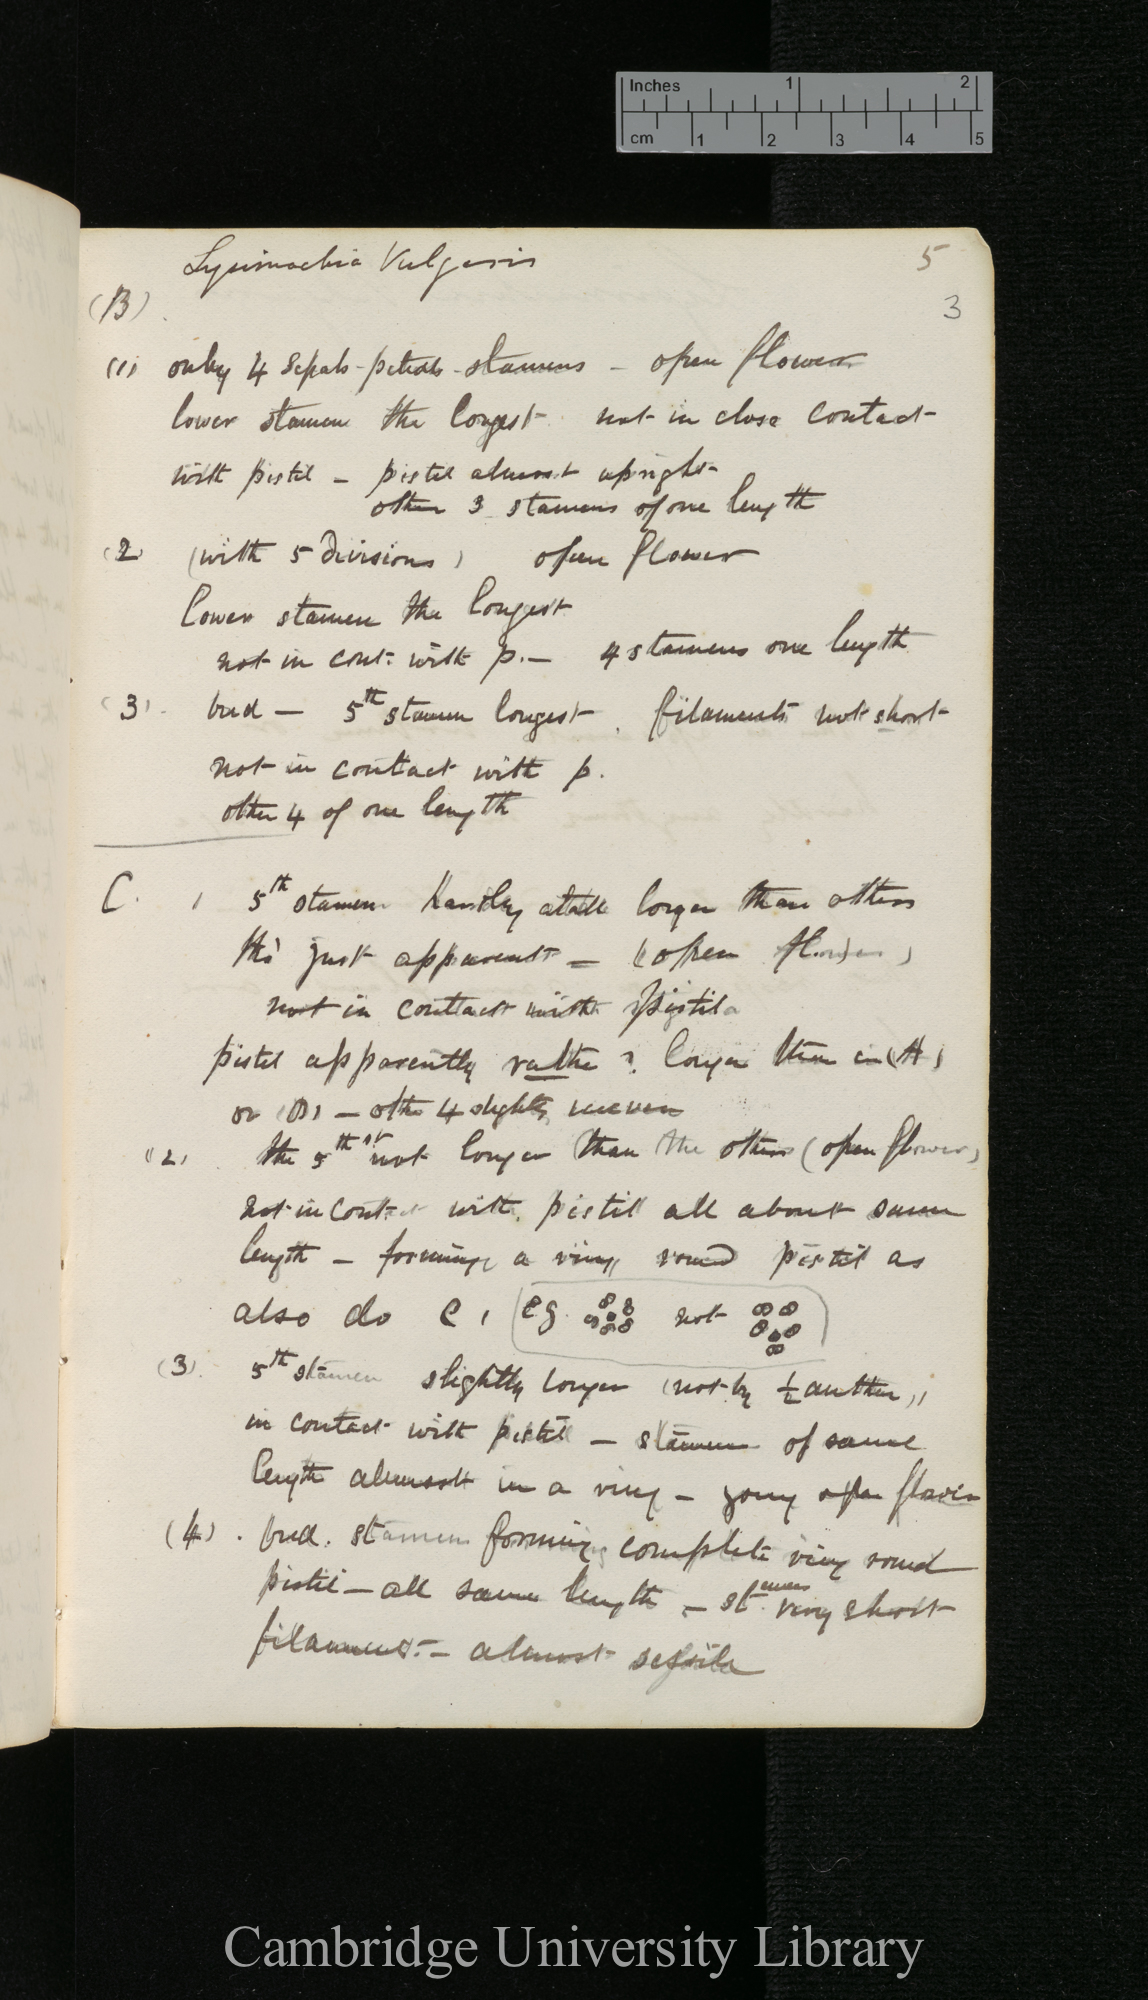 Inches 1 2
cm 1 2 3 4 5
Lysimachia Vulgaris 5
(B) 3
(1) only 4 sepals - petals - stamens - open flower
lower stamen the longest not in close contact
with pistil - pistil almost upright
other 3 stamens of one length
(2) (with 5 divisions) open flower
lower stamen the longest
not in cont: with p. - 4 stamens one length
(3) bud - 5th stamen longest. filaments not short
not in contact with p.
other 4 of one length
C. 1 5th stamen hardly atall longer than others
tho' just apparent - (open flower)
not in contact with pistil
pistil apparently rather ? longer than in (A)
or (B) - other 4 slightly uneven
(2) the 5th st not longer than the others (open flower)
not in contact with pistil all about same
length - forming a ring round pistil as
also do C 1 (eg not )
(3) 5th stamen slightly longer (not by ½ anther)
in contact with pistil - stamens of same
length almost in a ring - young open flower
(4) . bud. stamens forming complete ring round
pistil - all same length - stamens very short
filaments - almost sessile
Cambridge University Library